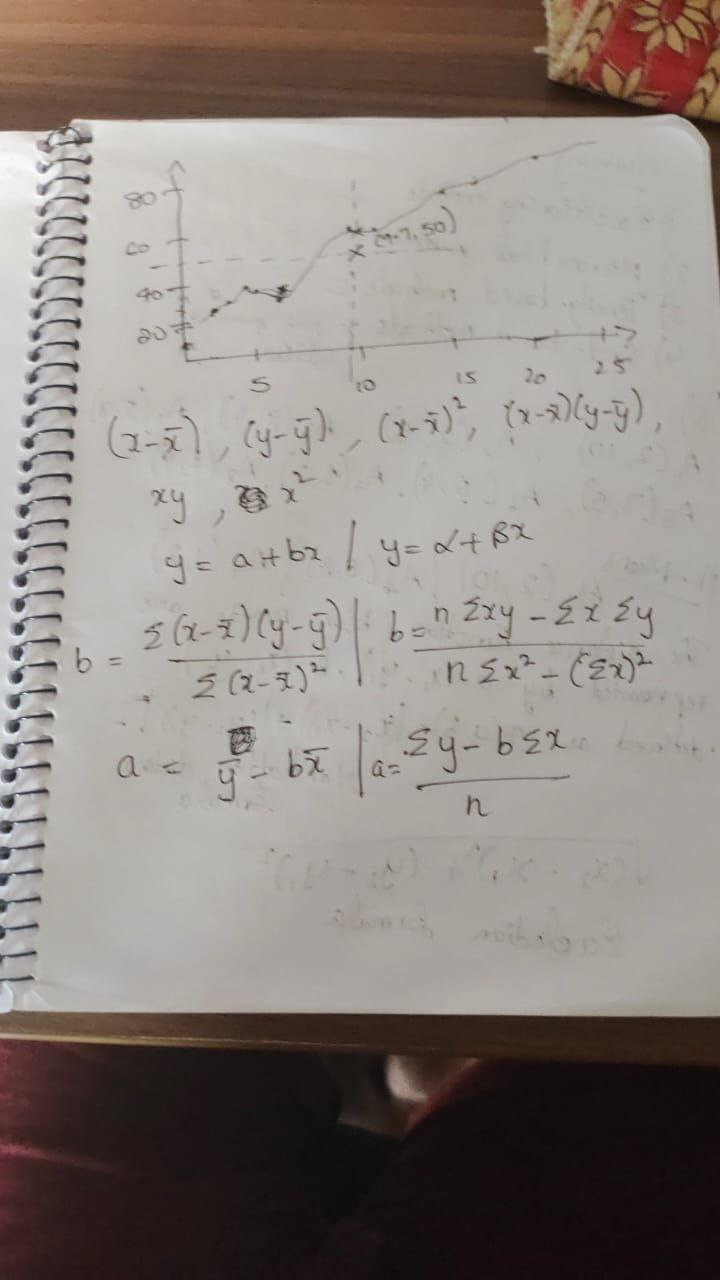 80
60
(9.7, 50)
40
20
5 10 15 20 25
(x-x̄), (y-ȳ), (x-x̄)², (x-x̄)(y-ȳ),
xy, x²
y = a+bx / y = α+βx
b = Σ(x-x̄)(y-ȳ) / Σ(x-x̄)² | b = nΣxy - Σx Σy / nΣx² - (Σx)²
a = ȳ - bx̄ | a = Σy - bΣx / n